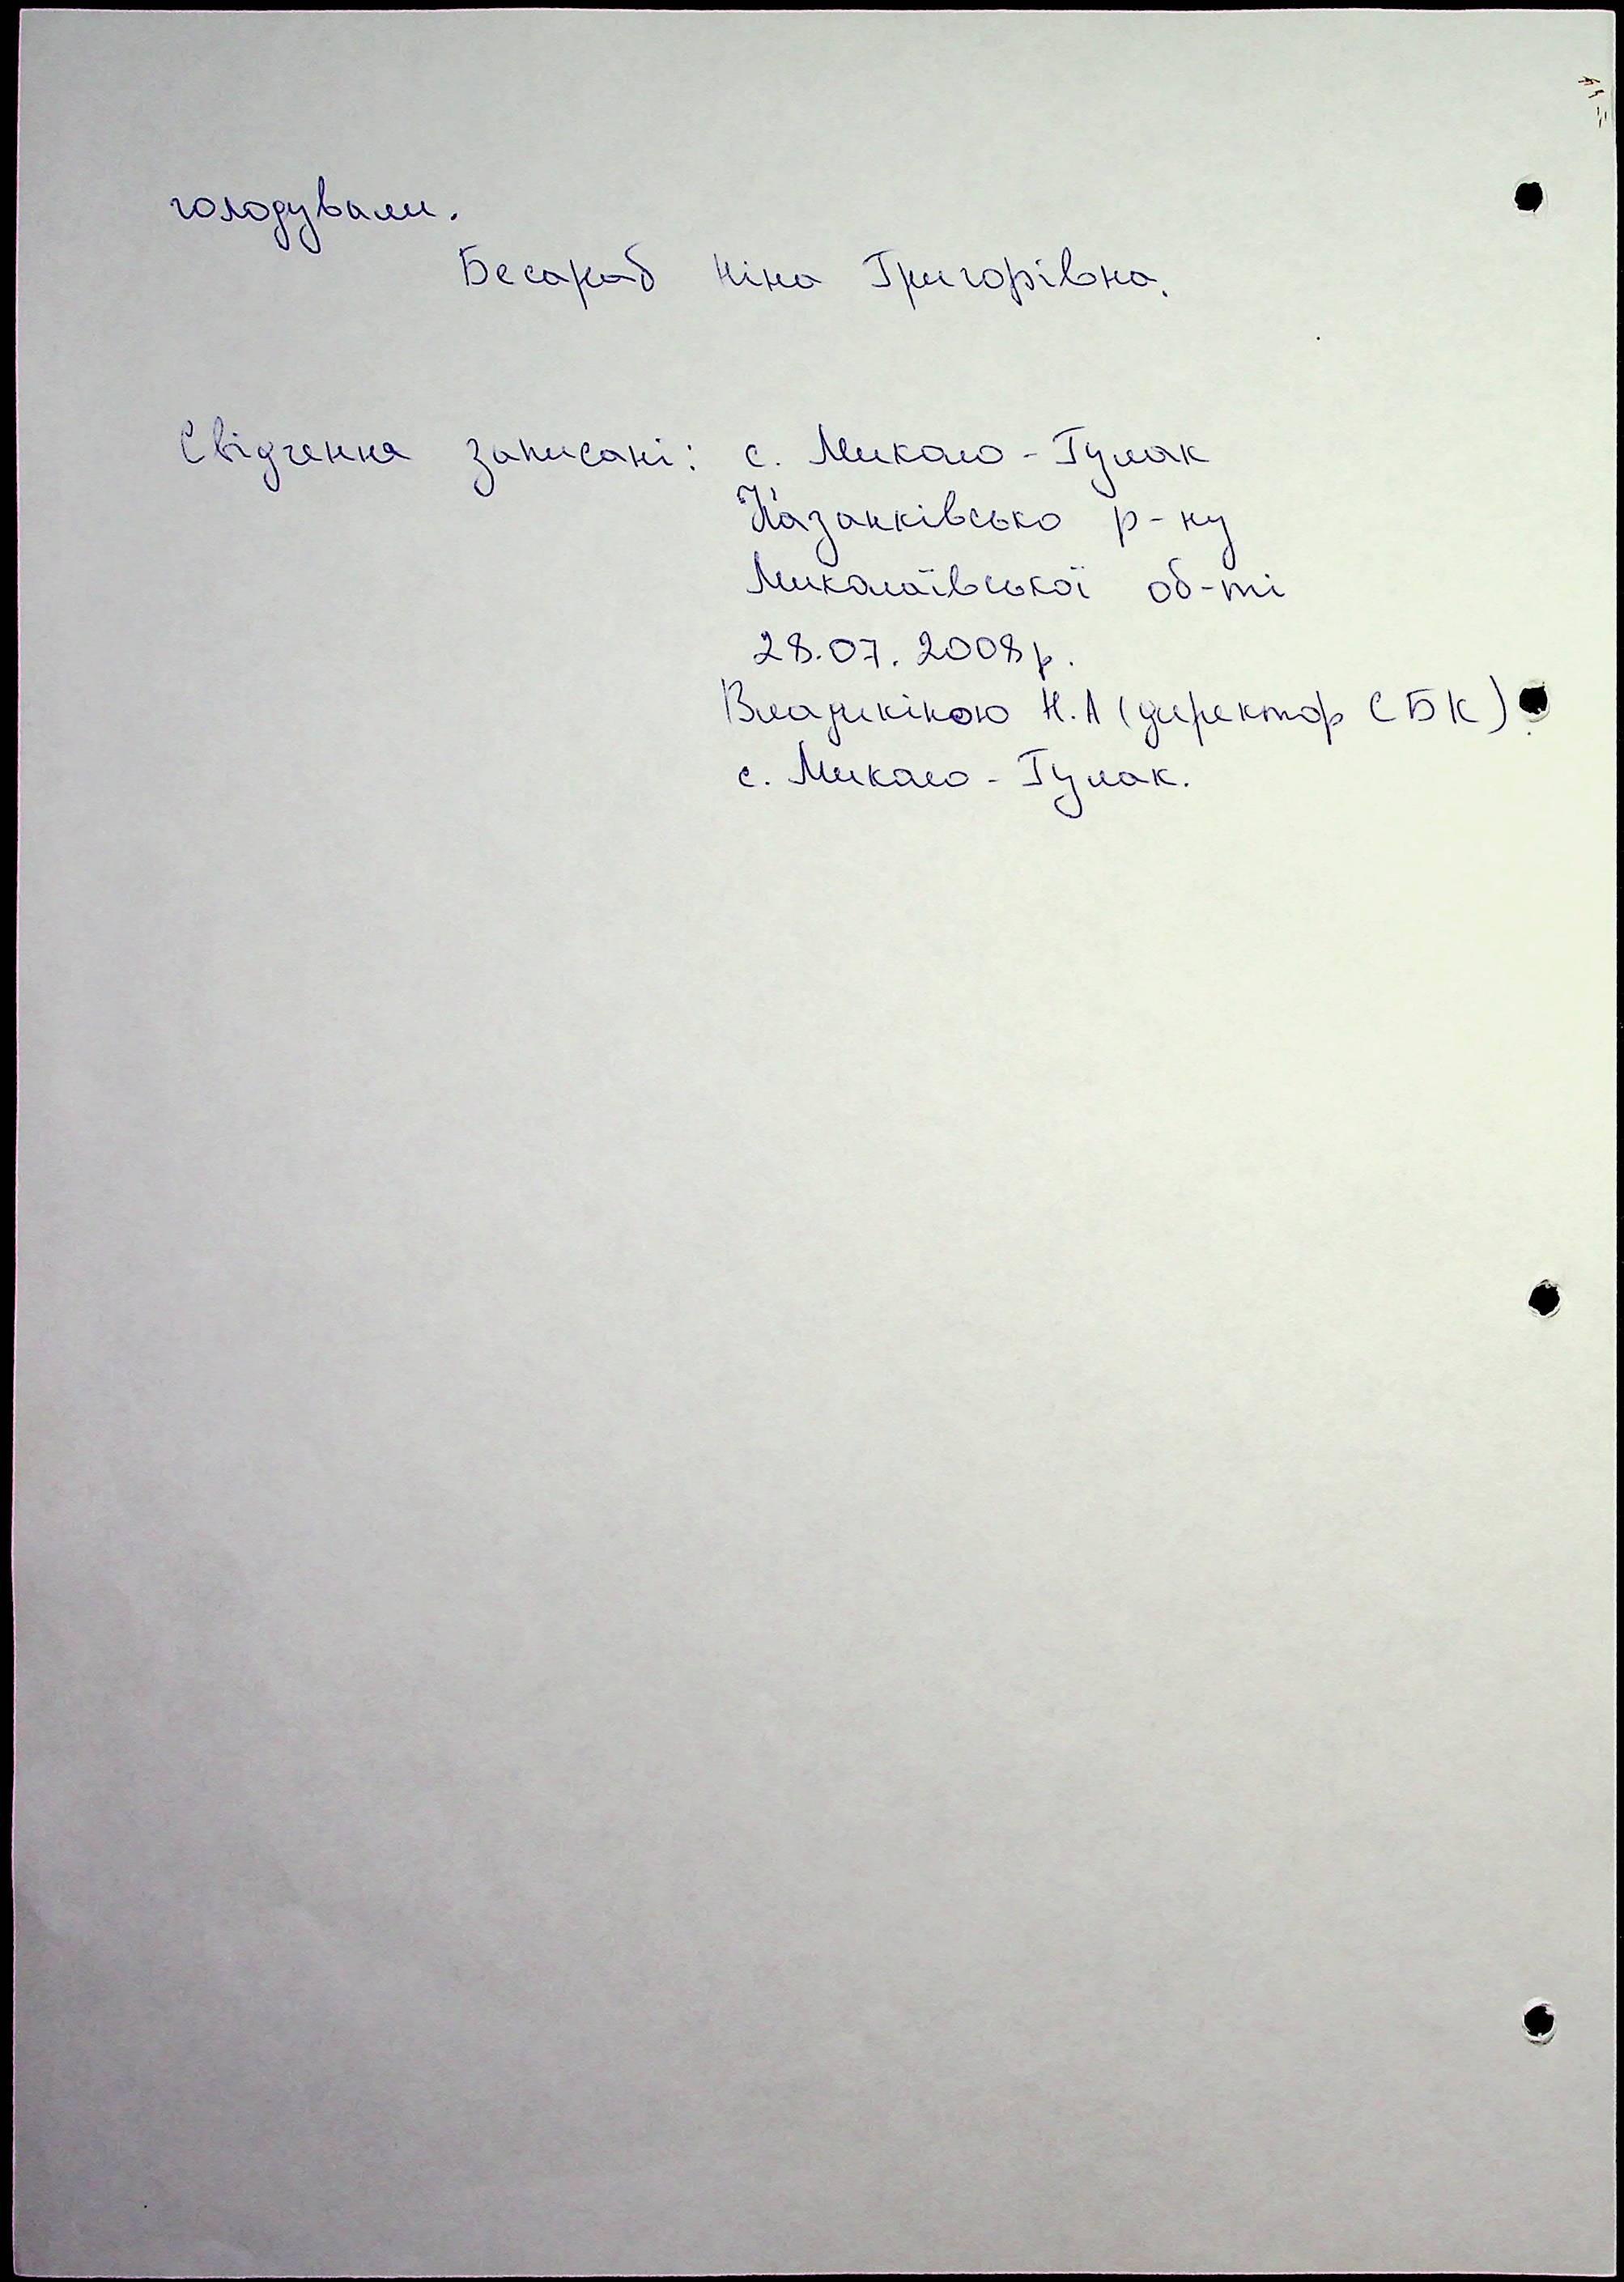 голодували.
Бесараб Ніна Григорівна.
Свідчення записані: с. Миколо-Гулак
Казанківсько р-ну
Миколаївської об-ті
28.07.2008р.
Владикіною Н.А (директор СБК)
с. Миколо-Гулак.